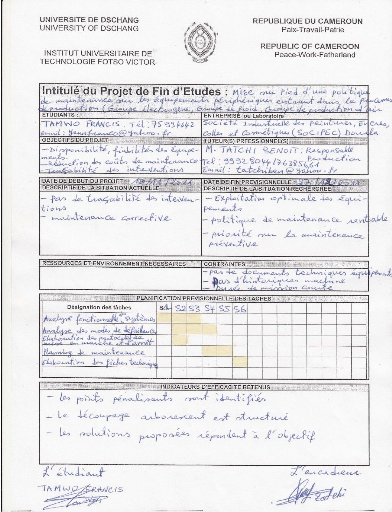 UNIVERSITE DE DSCHANG
UNIVERSITY OF DSCHANG
INSTITUT UNIVERSITAIRE DE
TECHNOLOGIE FOTSO VICTOR
REPUBLIQUE DU CAMEROUN
Paix-Travail-Patrie
REPUBLIC OF CAMEROON
Peace-Work-Fatherland
Intitulé du Projet de Fin d'Etudes : Mise sur pied d'une politique
de maintenance sur les équipements périphériques
production
ETUDIANTS :
TAMWO FRANCIS. Tél :
email :
ENTREPRISE ou Laboratoire
Société Industrielle des peintures, Encres,
Colles et Cosmétiques (SOCIPEC) Douala
OBJECTIFS DU PROJET
- Disponibilité, fiabilité des équipements
- Réduction des coûts de maintenance
- Traçabilité des interventions
TUTEUR(S) PERSONNEL(S)
M. TATCHI BENOIT, Responsable
Production
Tél :
Email :
DATE DE DEBUT DU PROJET :
DESCRIPTIF DE LA SITUATION ACTUELLE
- pas de traçabilité des interventions
- maintenance corrective
DATE DE FIN PREVISIONNELLE :
DESCRIPTIF DE LA SITUATION RECHERCHEE
- Exploitation optimale des équipements
- politique de maintenance rentable
- priorité sur la maintenance
préventive
RESSOURCES ET ENVIRONNEMENT NECESSAIRES
CONTRAINTES
- pas de documents techniques équipements
- pas d'historiques machine
- Durée de mission courte
PLANIFICATION PREVISIONNELLE DES TACHES
Désignation des tâches
S1 S2 S3 S4 S5 S6
Analyse fonctionnelle systèmes
Analyse des modes de défaillances
Planning de maintenance
Elaboration des fiches techniques
INDICATEURS D'EFFICACITE RETENUS
- les points pénalisants sont identifiés
- Le découpage arborescent est structuré
- les solutions proposées répondent à l'objectif
L'étudiant
TAMWO FRANCIS
L'encadreur